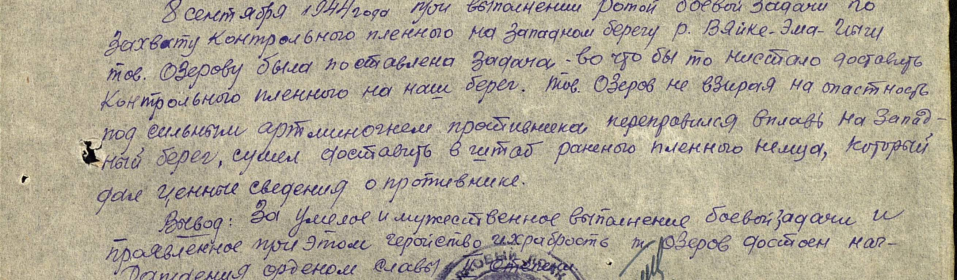 8 сентября 1944 года при выполнении ротой боевой задачи по
захвату контрольного пленного на Западном берегу р. Вяйке-Эма-Йыги
тов. Озерову была поставлена задача - во что бы то нистало доставить
Контрольного пленного на наш берег. Тов. Озеров не взирая на опастность
под сильным артминогнем противника переправился вплавь на Запад-
ный берег, сумел доставить в штаб раненого пленного немца, который
дал ценные сведения о противнике.
Вывод: За умелое и мужественное выполнение боевой задачи и
проявленное при этом геройство и храбрость т. Озеров достоин наг-
раждения орденом славы